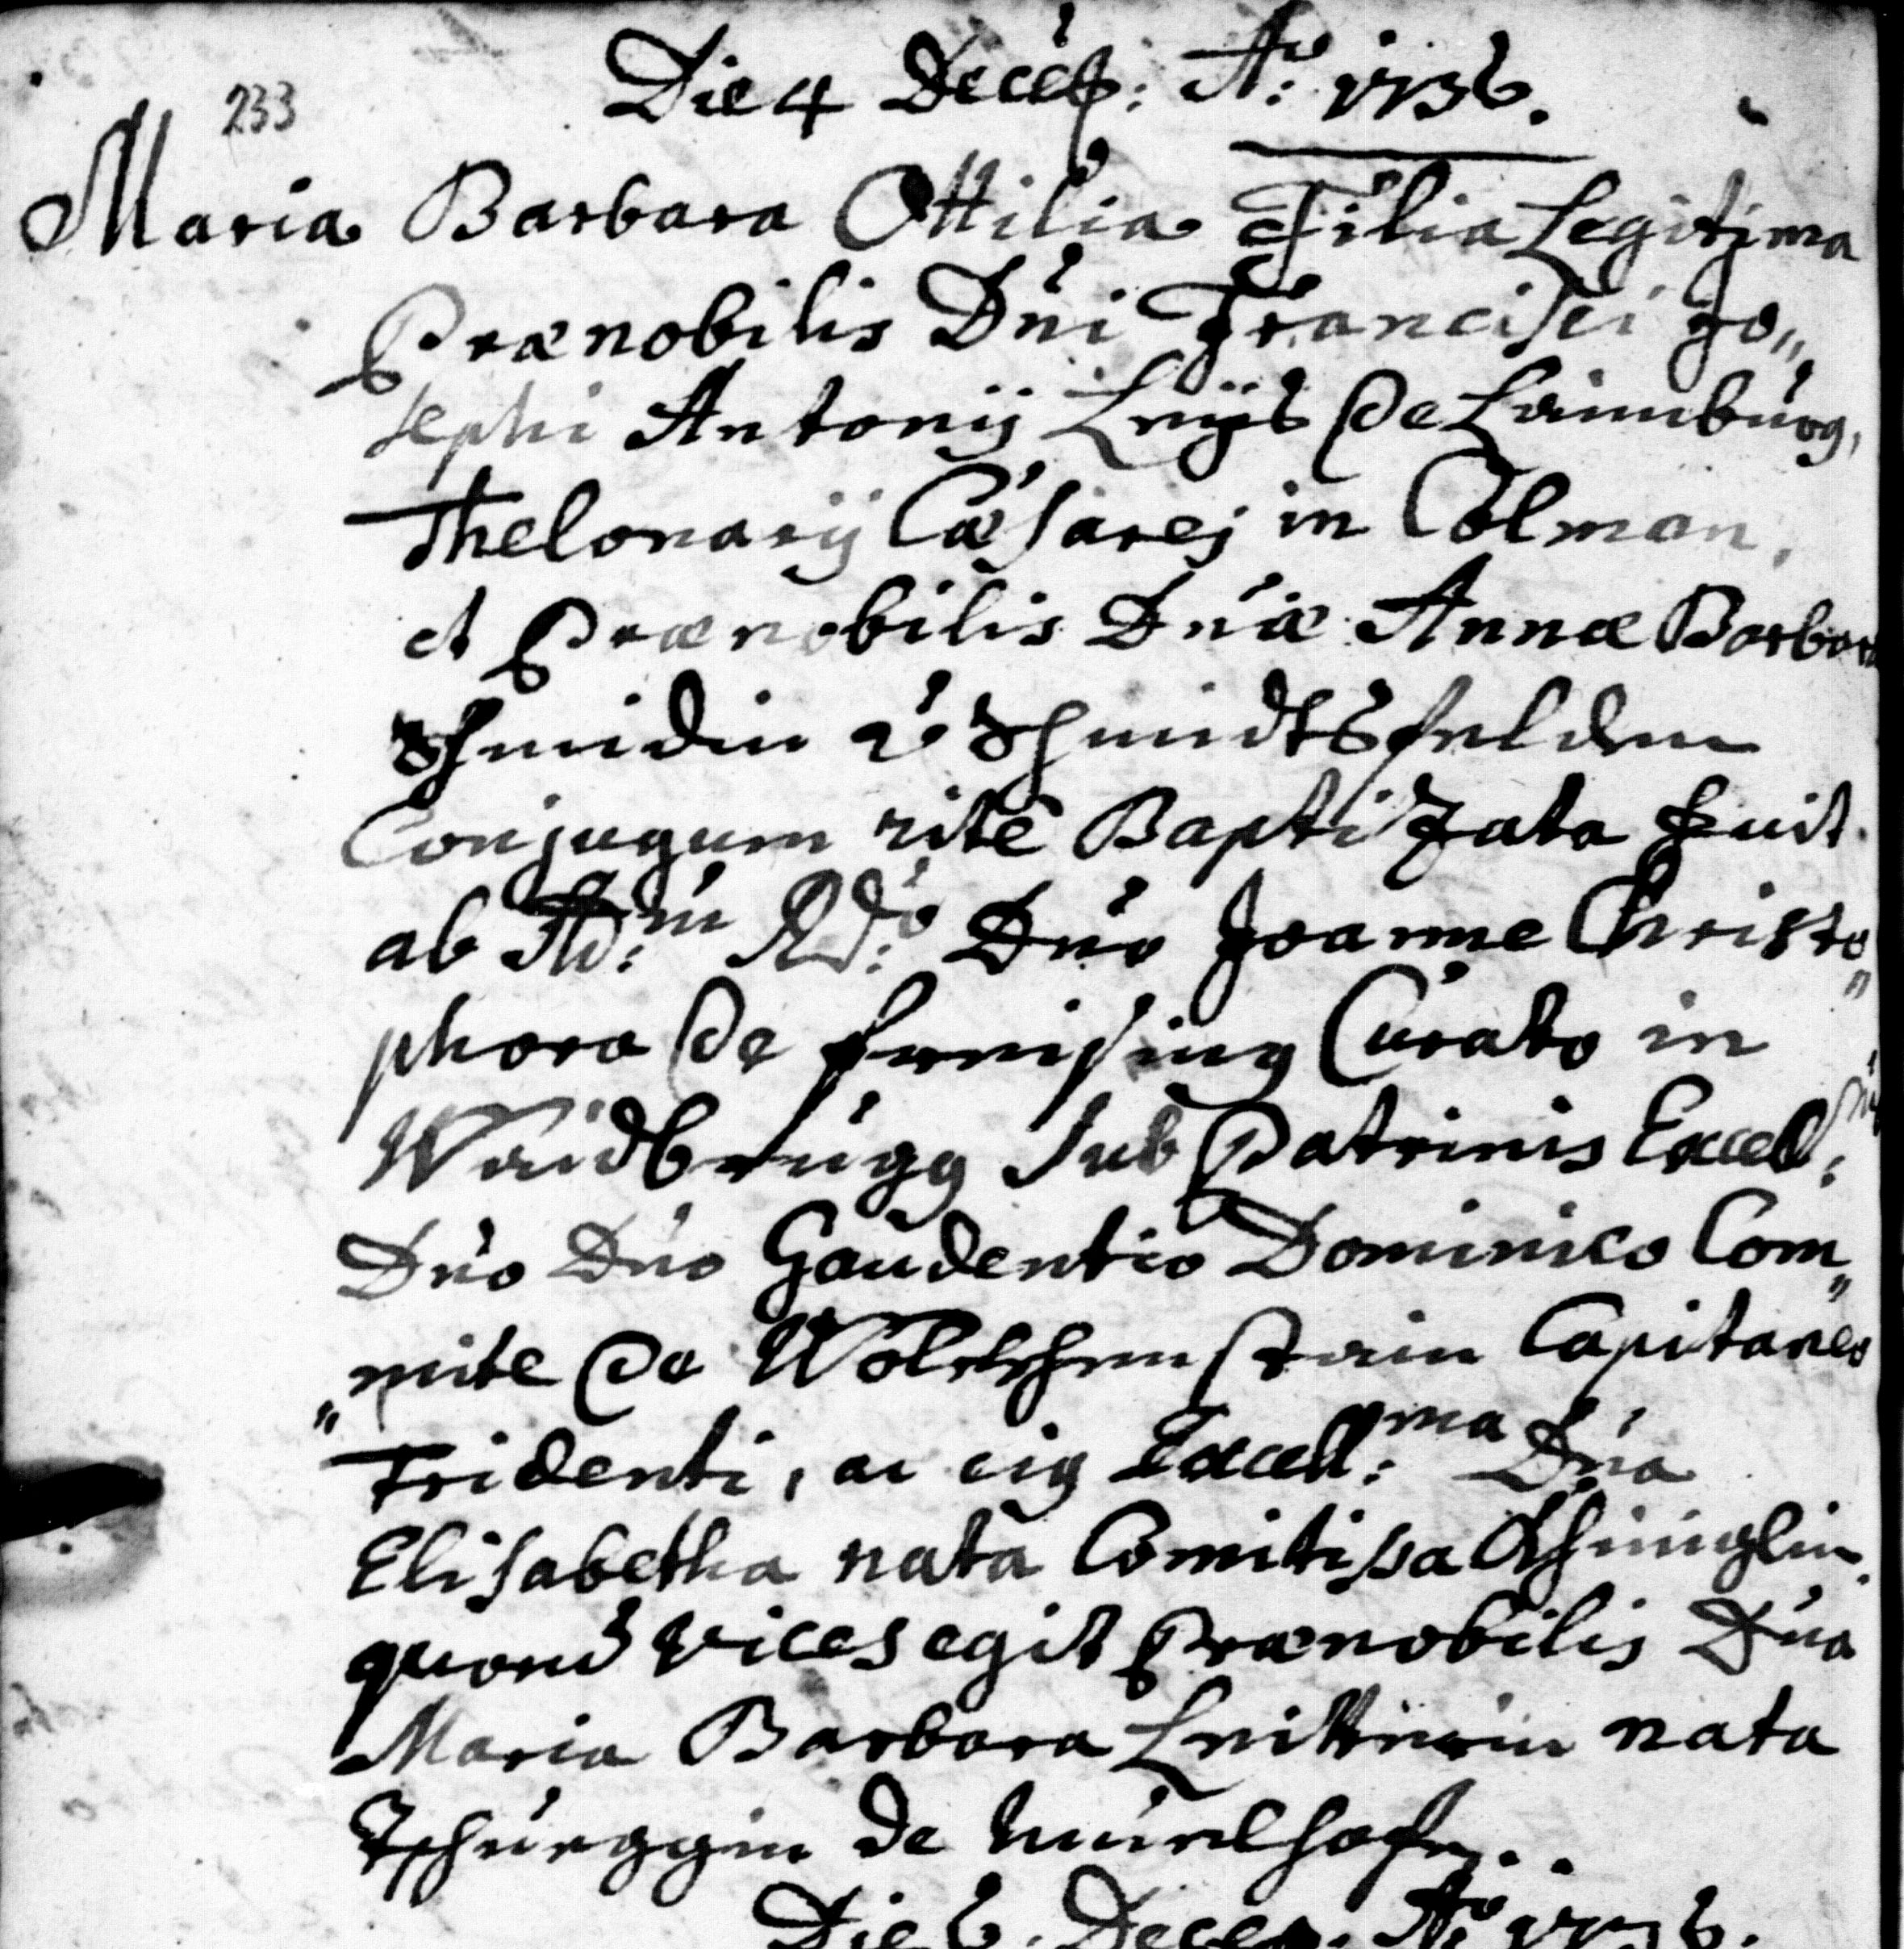 233
Die 4 Deceb: Aõ: 1736.
Maria Barbara Ottilia Filia Legitima
Prænobilis Dni Francisci Jo„
sephi Antonij de Laimburg,
Thelonarij Cæsarej in Colman,
et Prænobilis Dnæ Annæ Barbara
Schmidin v Schmidtsfelden
Conjugum ritè Baptizata fuit
ab Ad:m Rdo: Dno Joanne Christo„
phoro de Curato in
Waidbrugg sub Patrinis Excell:
Dno Dno Gaudentio Dominico Com„
„mite de Wolckhenstain Capitaneo
Tridenti, ac eig Excell:ma Dna
Elisabetha nata Comitissa Khüniglin
quorũ vices egit Prænobilis Dna
Maria Barbara nata
de
Die 6. Deceb. Aõ 1736.